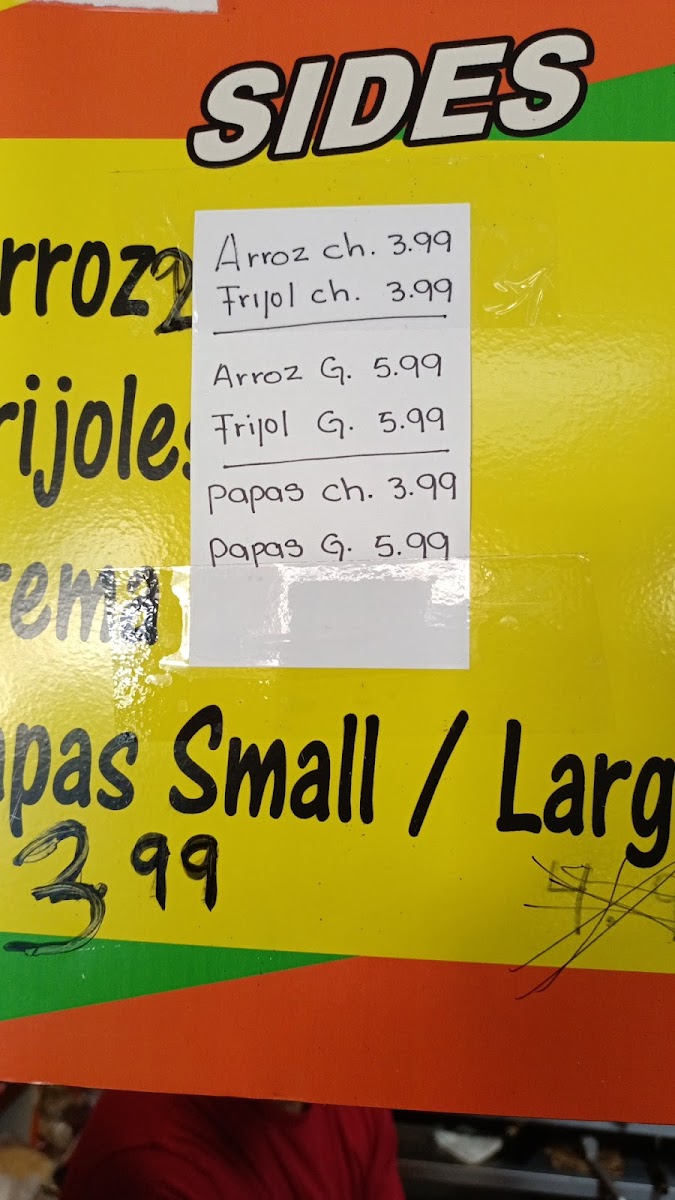 SIDES
Arroz ch. 3.99
Frijol ch. 3.99
Arroz G. 5.99
Frijol G. 5.99
Papas ch. 3.99
Papas G. 5.99
rroz
rijoles
rema
apas Small / Larg
3.99